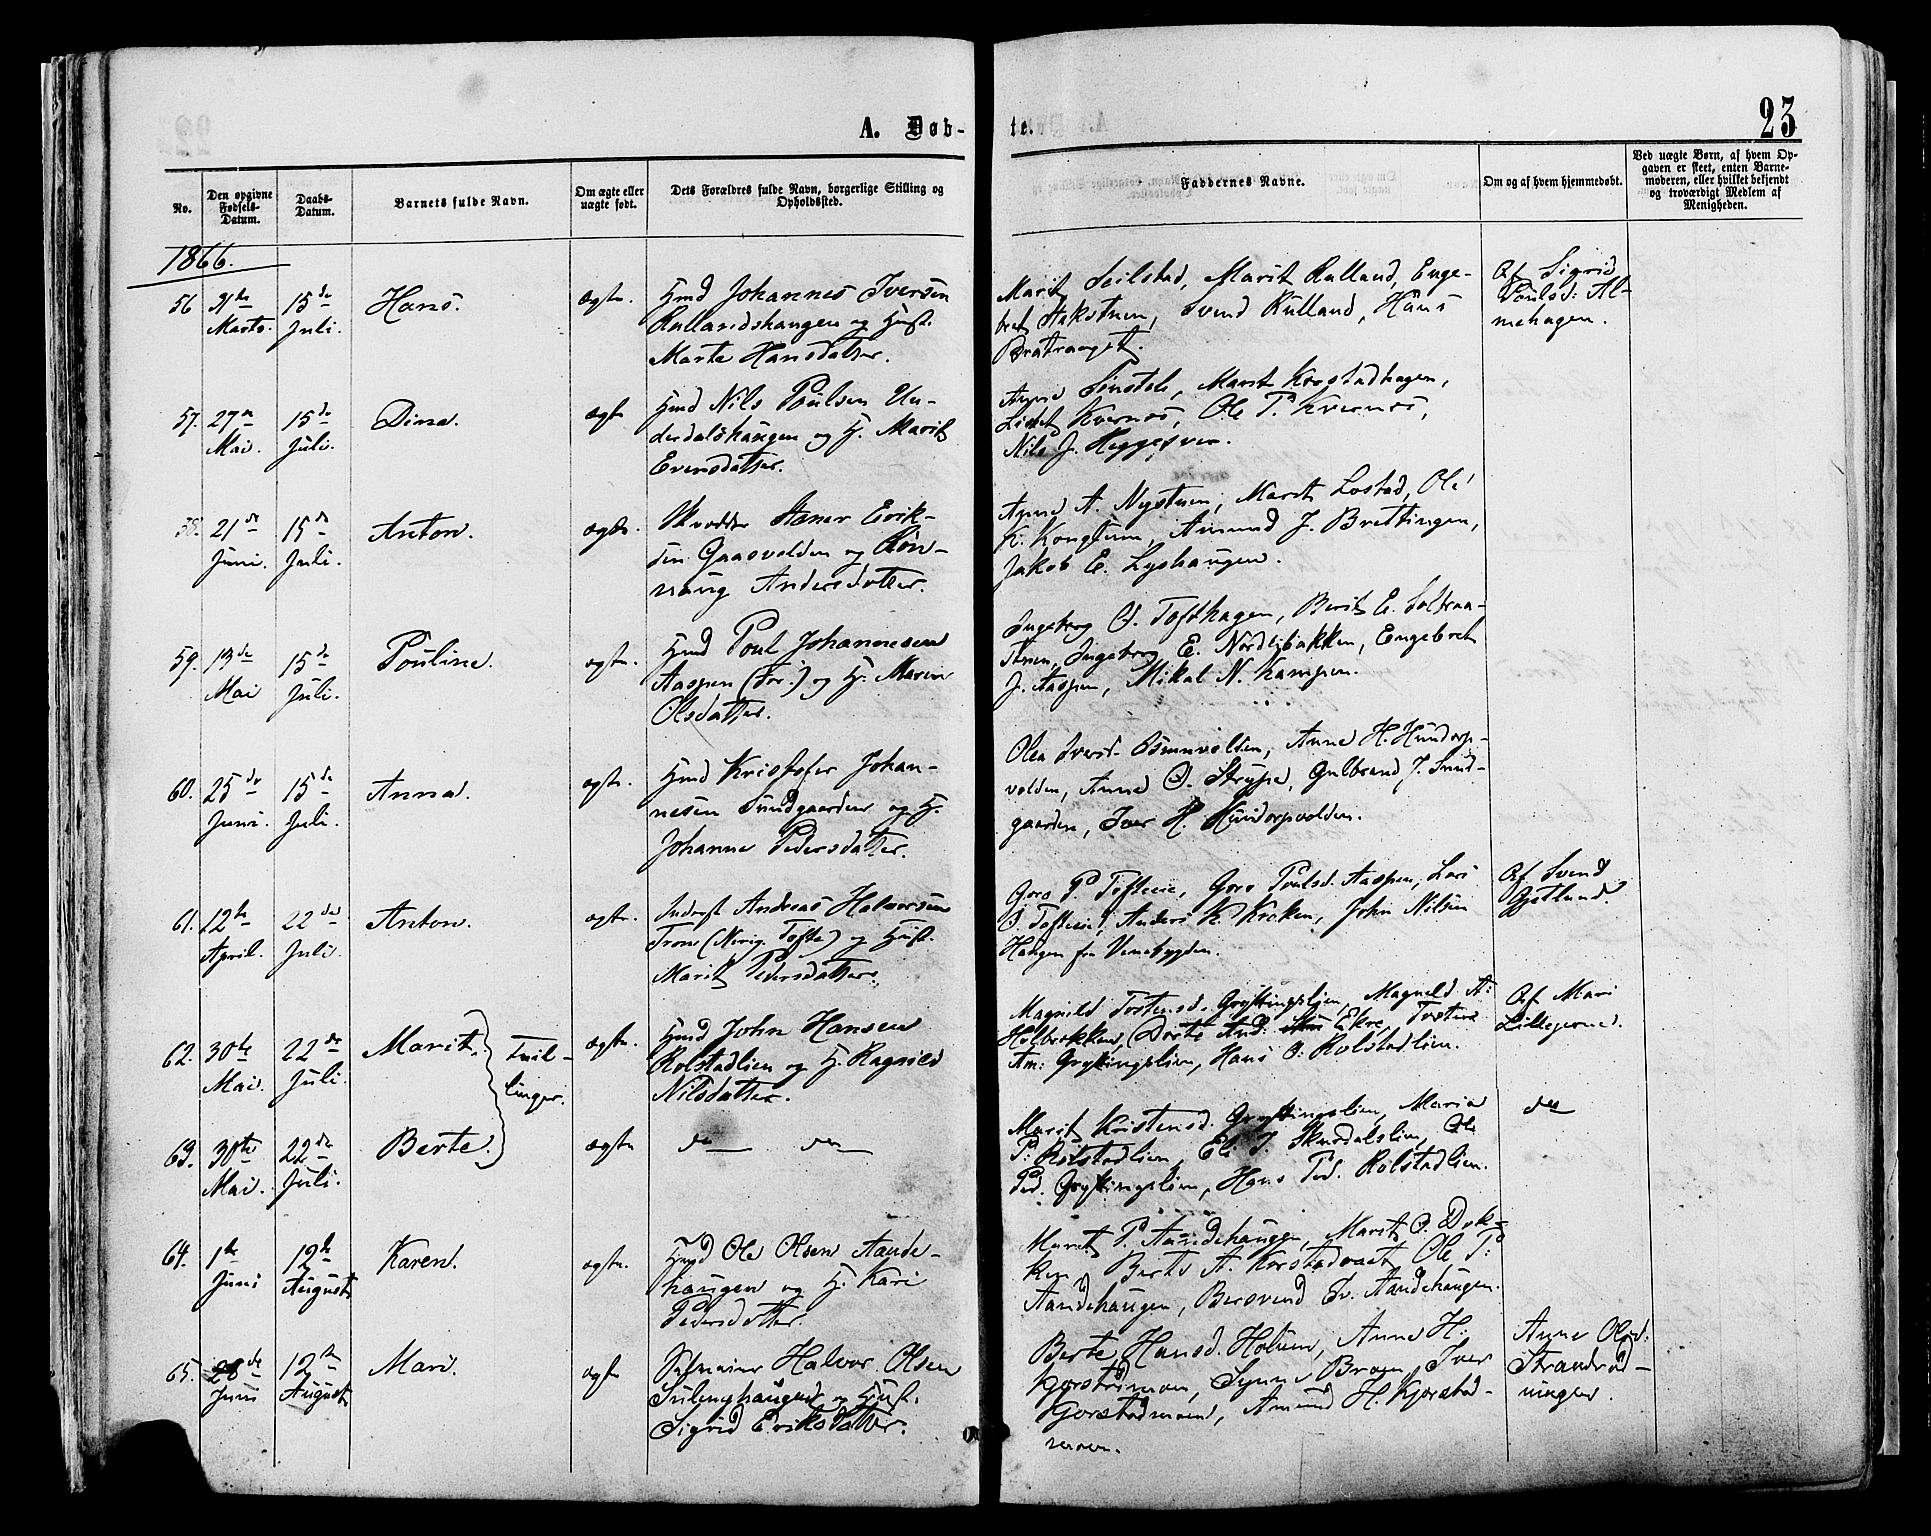 A. Døb-
te.
23
No.
Den opgivne Fødsels-Datum.
Daabs-Datum.
Barnets fulde Navn.
Om ægte eller uægte født.
Dets Forældres fulde Navn, borgerlige Stilling og Opholdssted.
Faddernes Navne.
Om og af hvem hjemmedøbt.
Ved uægte Børn, af hvem Op-
gaven er skeet, enten Barne-
moderen, eller hvilket bekjendt
og troværdigt Medlem af
Menigheden.
1866.
56 31te Marts. 15de Juli. Hans ægte.
Hmd Johannes Iversen
Rullandshaugen og Hust.
Marte Hansdatter.
Marit Seilstad, Marit Rulland, Enge-
bret Svend Rulland, Hans
Af Sigrid
Poulsd: Al-
mehagen.
57. 27de Mai. 15de Juli. Dina. ægte
Hmd Nils Poulsen Un-
derdalshaugen og H. Marit
Evensdatter.
Anne Marit Korstadhagen,
Kvernes, Ole P. Kvernes,
Nils J.
58. 21de Juni. 15de Juli. Anton. ægte.
Erik-
sen Gaasvolden og Røn-
naug Andersdatter.
Anne A. Nystuen, Marit Lostad, Ole
K. Amund J. Brettingen,
Jakob E. Lyshaugen.
59. 13de Mai 15de Juli. Pouline. ægte.
Hmd Poul Johannesen
Aaspen (For:) og H. Maren
Olsdatter.
Ingeborg O. Tofthagen, Berit E. Solbraa-
Ingeborg E. Nordlibakken, Engebret
J. Aaspen, Mikal N. Kampen.
60. 25de Juni. 15de Juli. Anna. ægte.
Hmd Kristofer Johan-
nesen Sundgaarden og H.
Johanne Pedersdatter.
Olea Iversd. Anne H. Hundorp-
volden, Anne O. Strype, Gulbrand J. Sund-
gaarden, Iver H. Hundorpvolden.
61. 12te April. 22de Juli. Anton. ægte.
Inderst Andreas Halvorsen
Trom (Nerig. Tofte) og Hust.
Marit Pedersdatter.
Goro P. Tofteeie, Goro Poulsd. Aaspen, Lari
O. Tofteeie, Anders K. Kroken, John Nilsen
Haugen fra Venebygden.
Af Svend
62. 30te Mai. 22de Juli. Marit. Tvil-
linger. ægte.
Hmd John Hansen
Rolstadlien og H. Ragnild
Nilsdatter.
Magnild Torstensd. Grytingslien, Magnild A:
Holbrekken, Dorte And. Ekre, Torsten
Am: Grytingslien, Hans O. Rolstadlien.
Af Mari
Lillegjerne.
63. 30te Mai. 22de Juli. Berte. ægte.
do do
Marit Kristensd. Grytingslien, Maria
P: Rolstadlien, Eli J. Skurdalslien, Ole
Ped. Grytingslien, Hans Ped. Rolstadlien.
do
64. 1te Juni 12te August Karen. ægte.
Hmd Ole Olsen Aande-
haugen og H. Kari
Pedersdatter.
Marit P. Aandehaugen, Marit O. Dok-
ken, Berte A. Korstadvaet, Ole T:
Aandehaugen, Bersvend Ev. Aandehaugen.
65. 28de Juni 12te August Mari. ægte
Halvor Olsen
og Hust.
Sigrid Eriksdatter.
Berte Hansd. Holuen, Anne H:
Kjorstadmoen, Synne Bræen, Iver
Kjorstadmoen, Amund H. Kjorstad-
moen.
Anne Olsd: